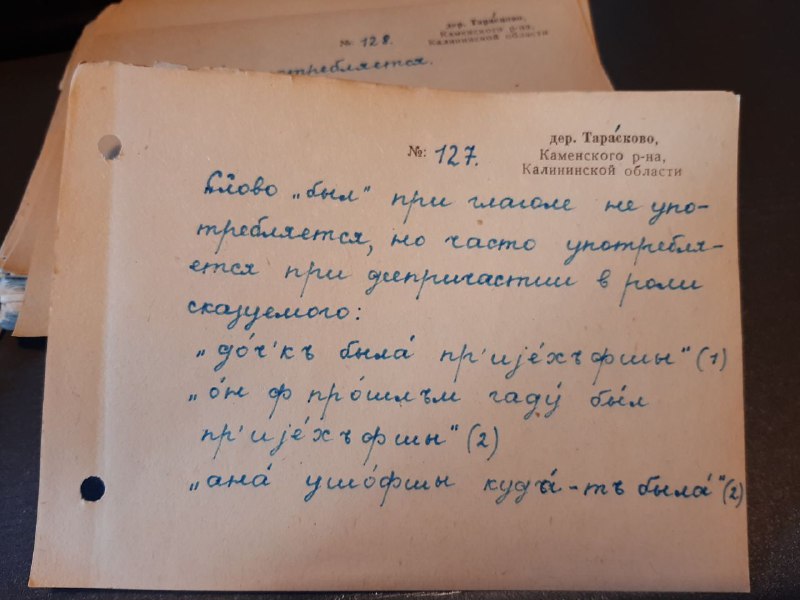 № 128.
дер. Тара́сково,
Каменского р-на,
Калининской области
отребляется.
№: 127.
дер. Тара́сково,
Каменского р-на,
Калининской области
Слово „был" при глаголе не упо-
требляется, но часто употребля-
ется при деепричастии в роли
сказуемого:
„до́ч'къ была́ пр'иjе́хъфшы" (1)
„о́н ф про́шлъм гаду́ бы́л
пр'иjе́хъфшы" (2)
„ана́ ушо́фшы куды́-тъ была́" (2)